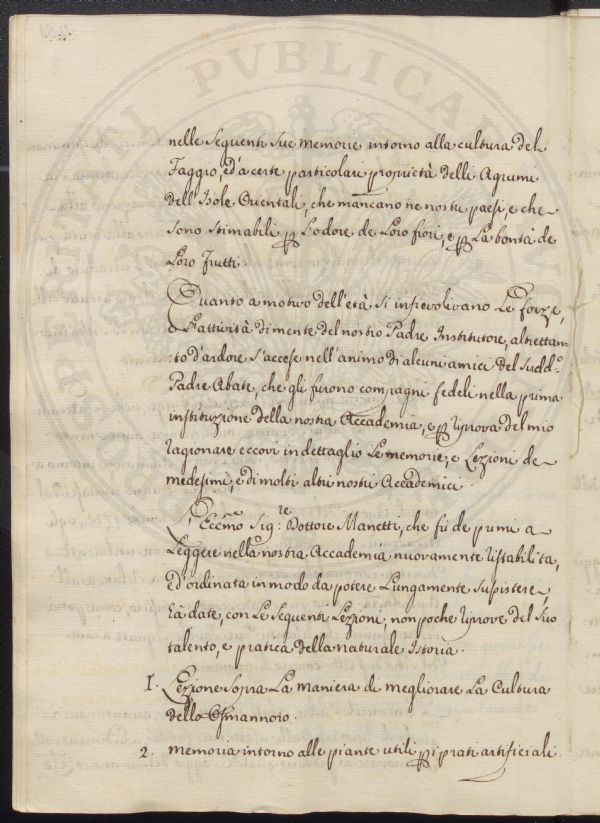 nelle Seguenti Sue memorie intorno alla cultura del
Faggio, ed'a certe particolari proprietà delli Agrumi
dell'Isole Orientali, che mancano ne nostri paesi, e che
sono stimabili p L'odore de Loro fiori, e p La bontà de
Loro Frutti.
Quanto a motivo dell'età Si infievolivano Le forze,
e L'attività di mente del nostro Padre Institutore, altrettan=
:to d'ardore S'accese nell'animo di alcuni amici del Sudd:º
Padre Abate, che gli furono compagni fedeli nella prima
instituzione della nostra Accademia, e p riprova del mio
ragionare eccovi in dettaglio Le memorie, e Lezioni de
medesimi, e di molti altri nostri Accademici.
L'Eccmo Sig:re Dottore Manetti, che fù de primi a
Leggere nella nostra Accademia nuovamente ristabilita,
ed'ordinata in modo da potere Lungamente Susistere
ha date, con Le Seguenti Lezioni, non poche riprove del Suo
talento, e pratica della naturale Istoria.
I. Lezione Sopra La maniera di megliorare La Cultura
dello Osmannoro.
2. memoria intorno alle piante utili p i prati artificiali.
PVBLICAE